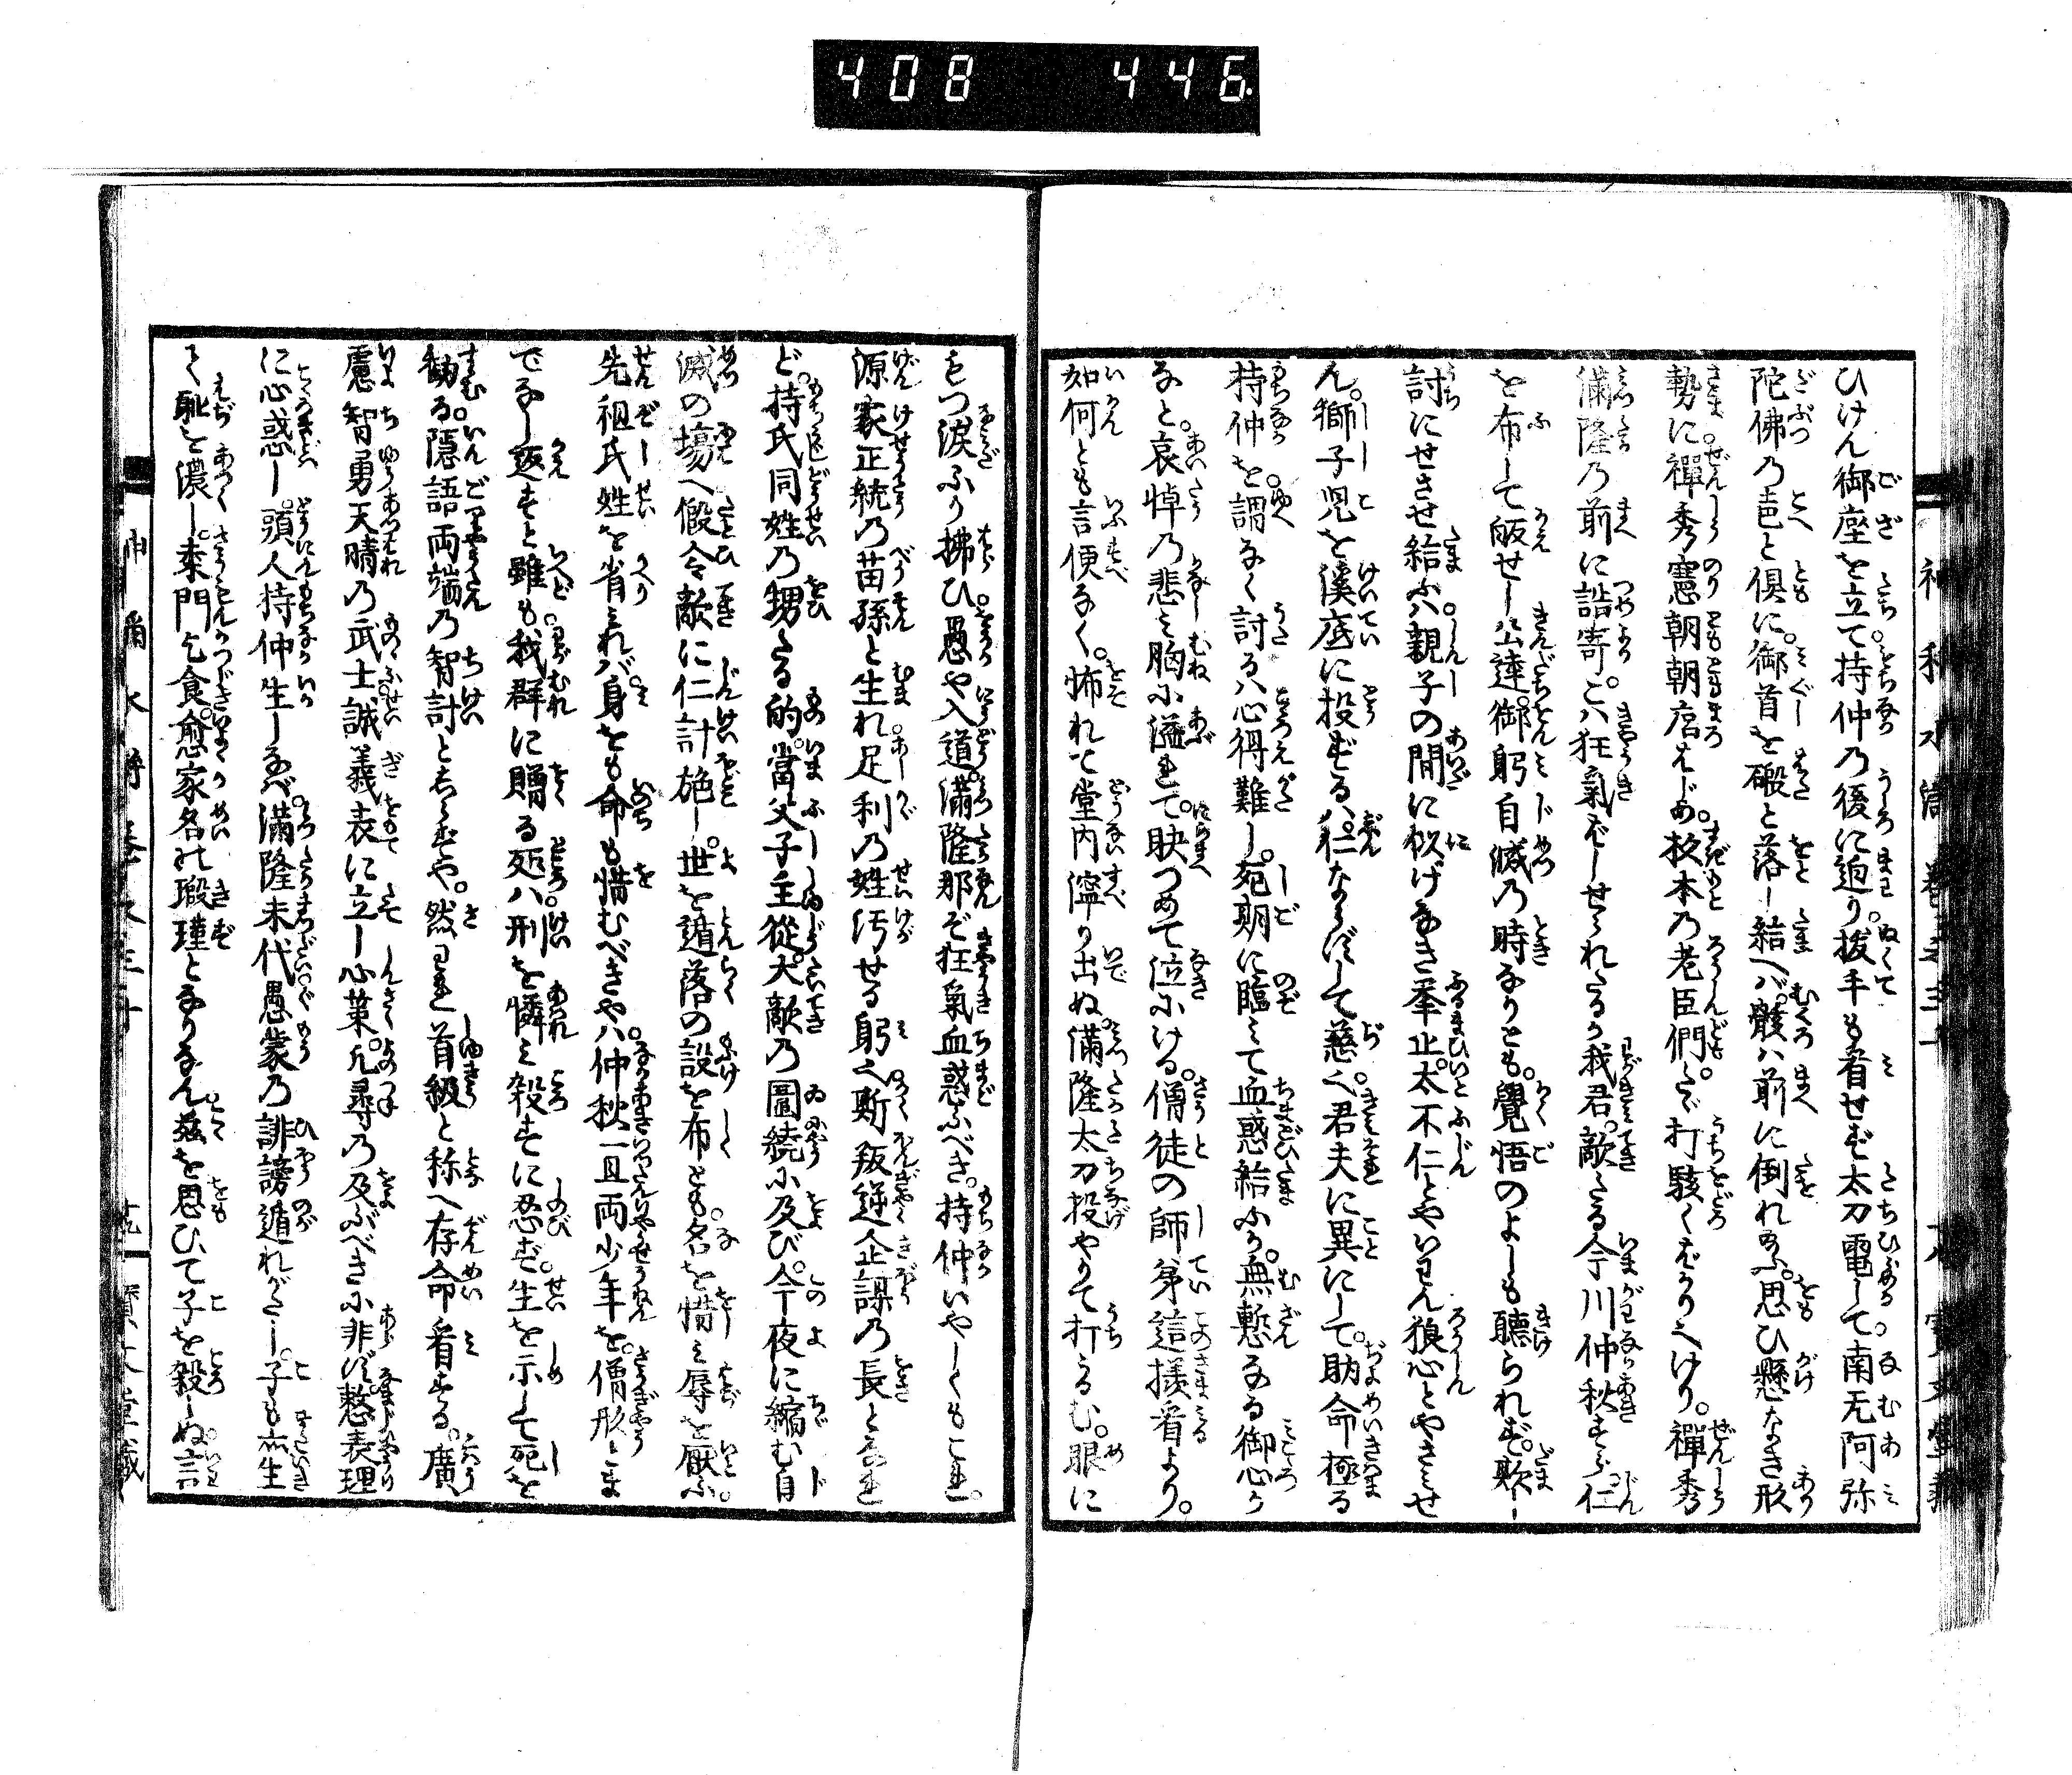 408 446
ひけん御座を立て持仲乃後に迫り。拔手も看せず太刀電して南无阿弥
陀佛乃と倶に。御首を礑と落し給へバ。骸ハ前に倒れ思ひ懸なき形
勢に禪秀憲朝朝宿はじめ。杦本乃老臣們まで打駭くばかり也けり。禪秀
滿隆乃前に詰寄。こハ狂氣ばしせられたるか我君。敵たる今川仲秋すら仁
を布して皈せし公達。御躬自滅乃時なりとも。覺悟のよしも聽られず。欺し
討にせさせ給ふハ親子の間に似げなき挙止。太不仁とやいはん狼心とやさミせ
ん。獅子児を溪底に投ずるハ仁ならずして慈也。君夫に異にして。助命極る
持仲を。謂なく討るハ心得難し。死期に臨ミて血惑給ふか。無慙なる御心か
なと。哀悼乃悲ミ胸に溢れて。眦つめて泣にける。僧徒の師弟這樣看より。
如何とも言便なく。怖れて堂内濘り出ぬ滿隆太刀投やりて打うるむ。眼に
もつ涙ふり拂ひ。愚や入道。滿隆那ぞ狂氣血惑ふべき。持仲いやしくもこれ。
源家正統乃苗孫と生れ足利乃姓汚せる躬也斯叛逆企謀乃長となれ
ど。持氏同姓乃甥たる的。當父子主從。大敵乃圍繞に及び。今夜に縮む自
滅の場へ假令敵に仁計施し。世を遁落の設を布とも。名を惜ミ辱を厭ふ。
先祖氏姓を省ミれバ。身をも命も惜むべきやハ仲秋一旦両少年を。僧形こま
でなし返すと雖も。我群に贈る処ハ刑を憐ミ殺すに忍ず。生を示して死を
勸る。隱語両端乃智計としらずや。然われ首級と称へ存命看する。廣
慮智勇天晴乃武士誠義表に立し心策。凡尋乃及ぶべきに非ず。憖表理
に心惑し。頭人持仲生しなバ。滿隆末代愚蒙乃誹謗遁れがたし。子も亦生
て恥を濃し。桒門乞食愈家名の瑕瑾となりなん茲を思ひて子を殺しぬ言